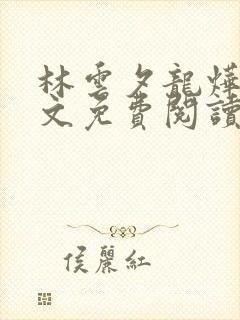 林雲夕龍燁
文免費閱讀
侯麗紅